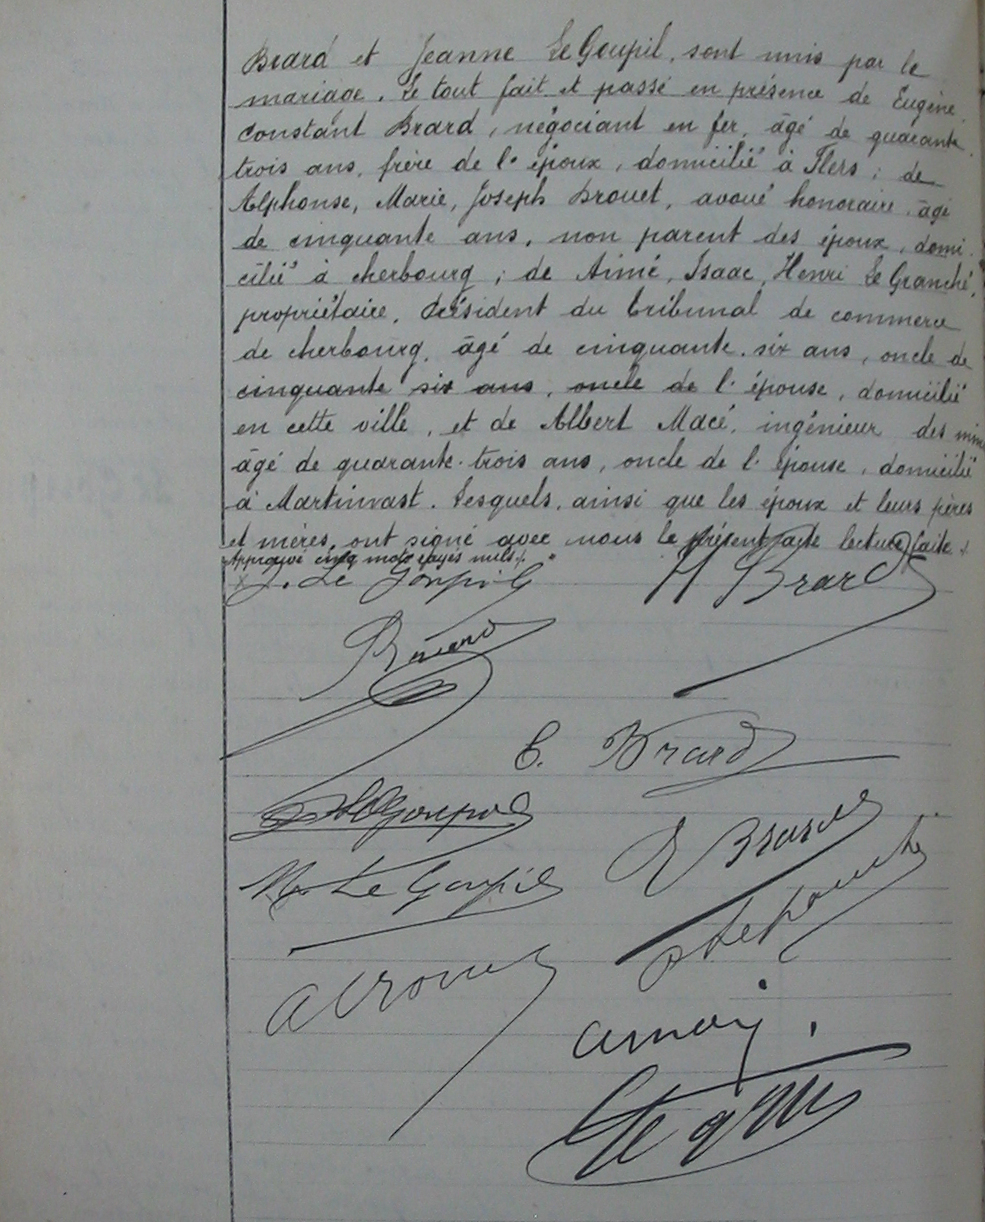 Brard et Jeanne Le Goupil, sont unis par le
mariage. Le tout fait et passé en présence de Eugène,
Constant Brard, négociant en fer, âgé de quarante
trois ans, frère de l'époux, domicilié à Flers; de
Alphonse, Marie, Joseph Drouet, avoué honoraire, âgé
de cinquante ans, non parent des époux, domi-
cilié à Cherbourg; de Aimé, Isaac, Henri Le Granché,
propriétaire, Président du tribunal de commerce
de Cherbourg, âgé de cinquante-six ans, oncle de
cinquante six ans, oncle de l'épouse, domicilié
en cette ville, et de Albert Macé, ingénieur des mines
âgé de quarante-trois ans, oncle de l'épouse, domicilié
à Martinvast. Lesquels, ainsi que les époux et leurs pères
et mères, ont signé avec nous le présent acte lecture faite.
Approuvé cinq mots rayés nuls.
J. Le Goupil
H Brard
E. Brard
Le Goupil
E Brard
M. Le Goupil